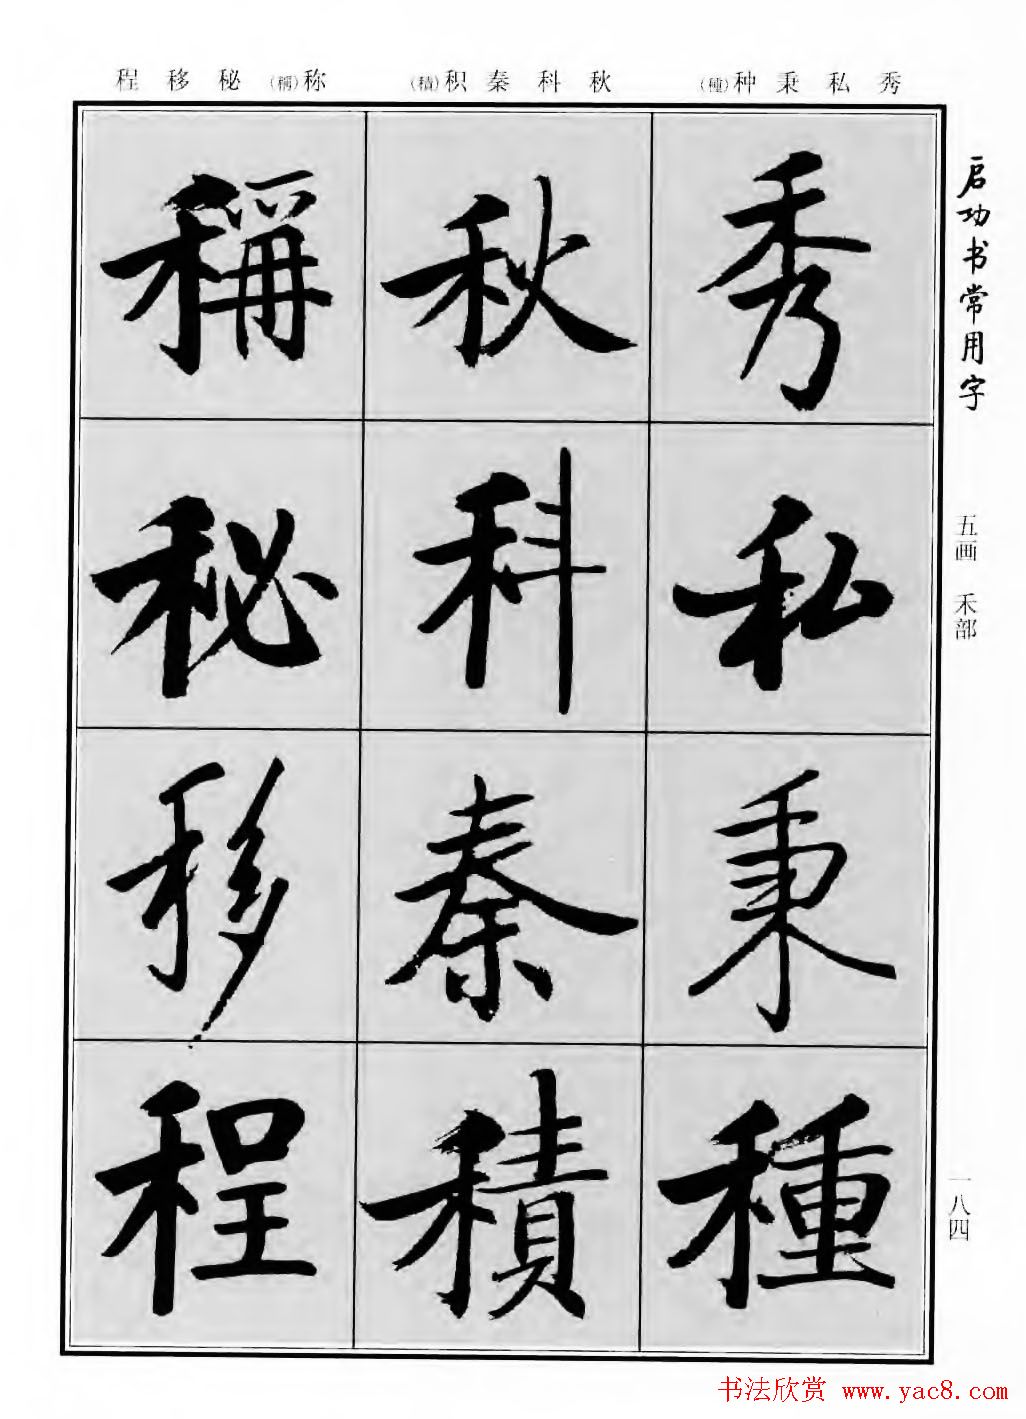 程移秘(稱)称 (積)积秦科秋 (種)种秉私秀
启功书常用字
五画 禾部
一八四
秀私秉種
秋科秦積
稱秘移程
书法欣赏 www.yac8.com